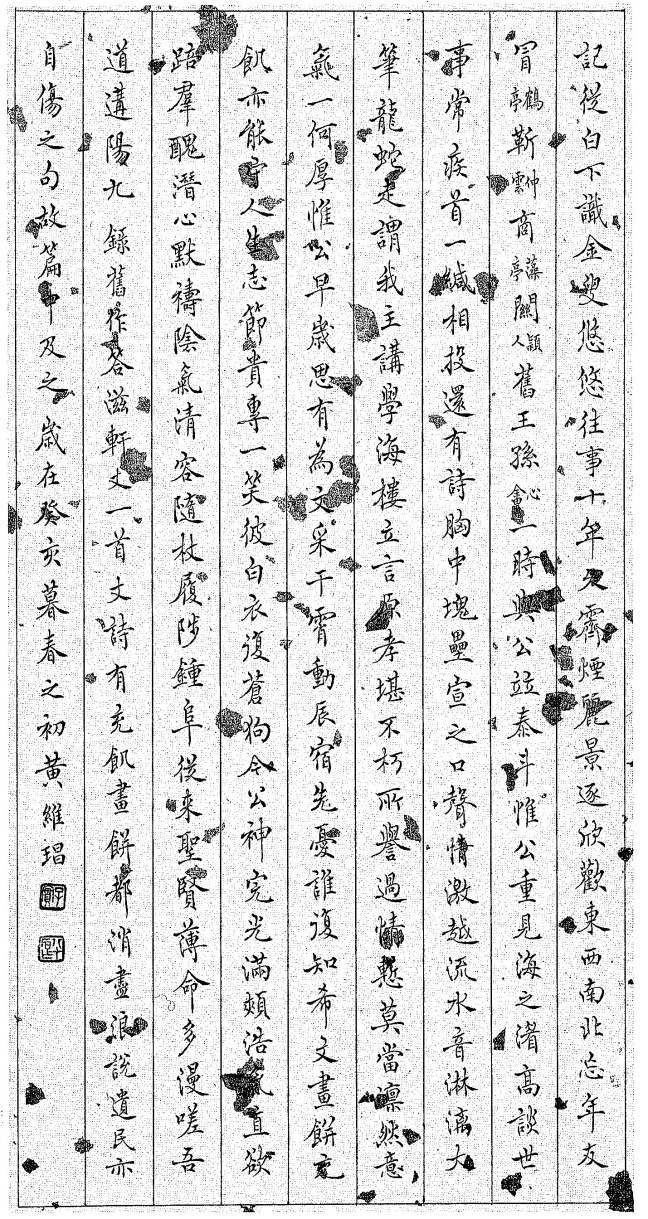 記從白下識金叟悠悠往事十年久霽煙麗景逐欣歡東西南北忘年友
冒鶴亭靳仲雲商藻亭關穎人舊王孫心畬一時與公竝泰斗惟公重見海之湄高談世
事常疾首一緘相投還有詩胸中塊壘宣之口聲情激越流水音淋漓大
筆龍蛇走謂我主講學海樓立言原孝堪不朽所譽過情慙莫當凛然意
氣一何厚惟公早歲思有為文采干霄動辰宿先憂誰復知希文畫餅充
飢亦能守人生志節貴專一笑彼白衣復蒼狗令公神完光滿頰浩氣直欲
踣羣醜潛心默禱陰氣清容隨杖履陟鍾阜從來聖賢薄命多漫嗟吾
道遘陽九 錄舊作答滋軒丈一首丈詩有充飢畫餅都消盡浪說遺民亦
自傷之句故篇中及之 歲在癸亥暮春之初黃維琩